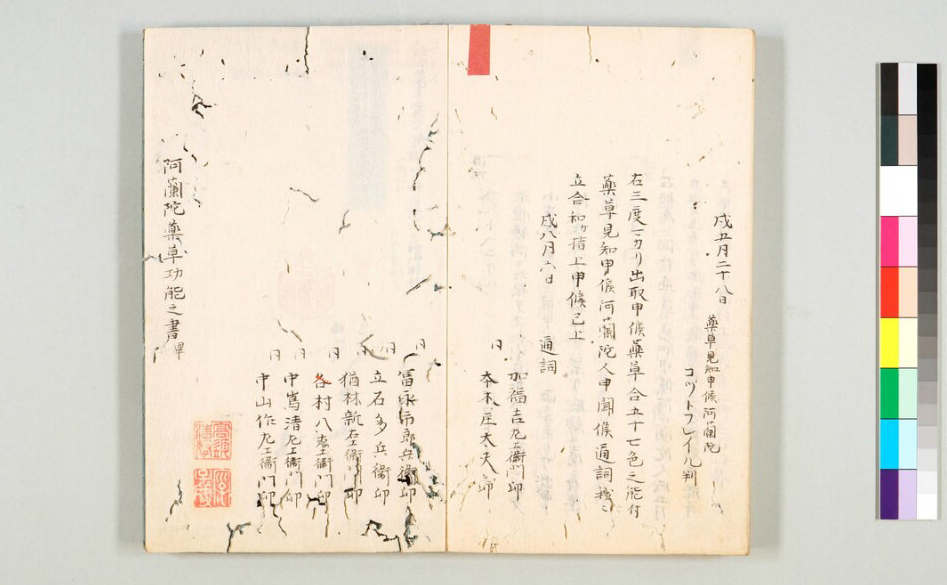 戌五月二十八日
薬草見知申候阿蘭陀
コヅトフレイル判
右三度ニカリ出取申候薬草合五十七色之能付
薬草見知申候阿蘭陀人申聞候通詞
立合和ケ指上申候已上
戌八月六日 通詞
加福吉左衛門印
同 本木庄太夫印
同 富永市郎兵衛印
同 立石多兵衛印
同 楢林新右衛門印
同 名村八左衛門印
同 中嶌清左衛門印
同 中山作左衛門印
阿蘭陀薬草功能之書畢